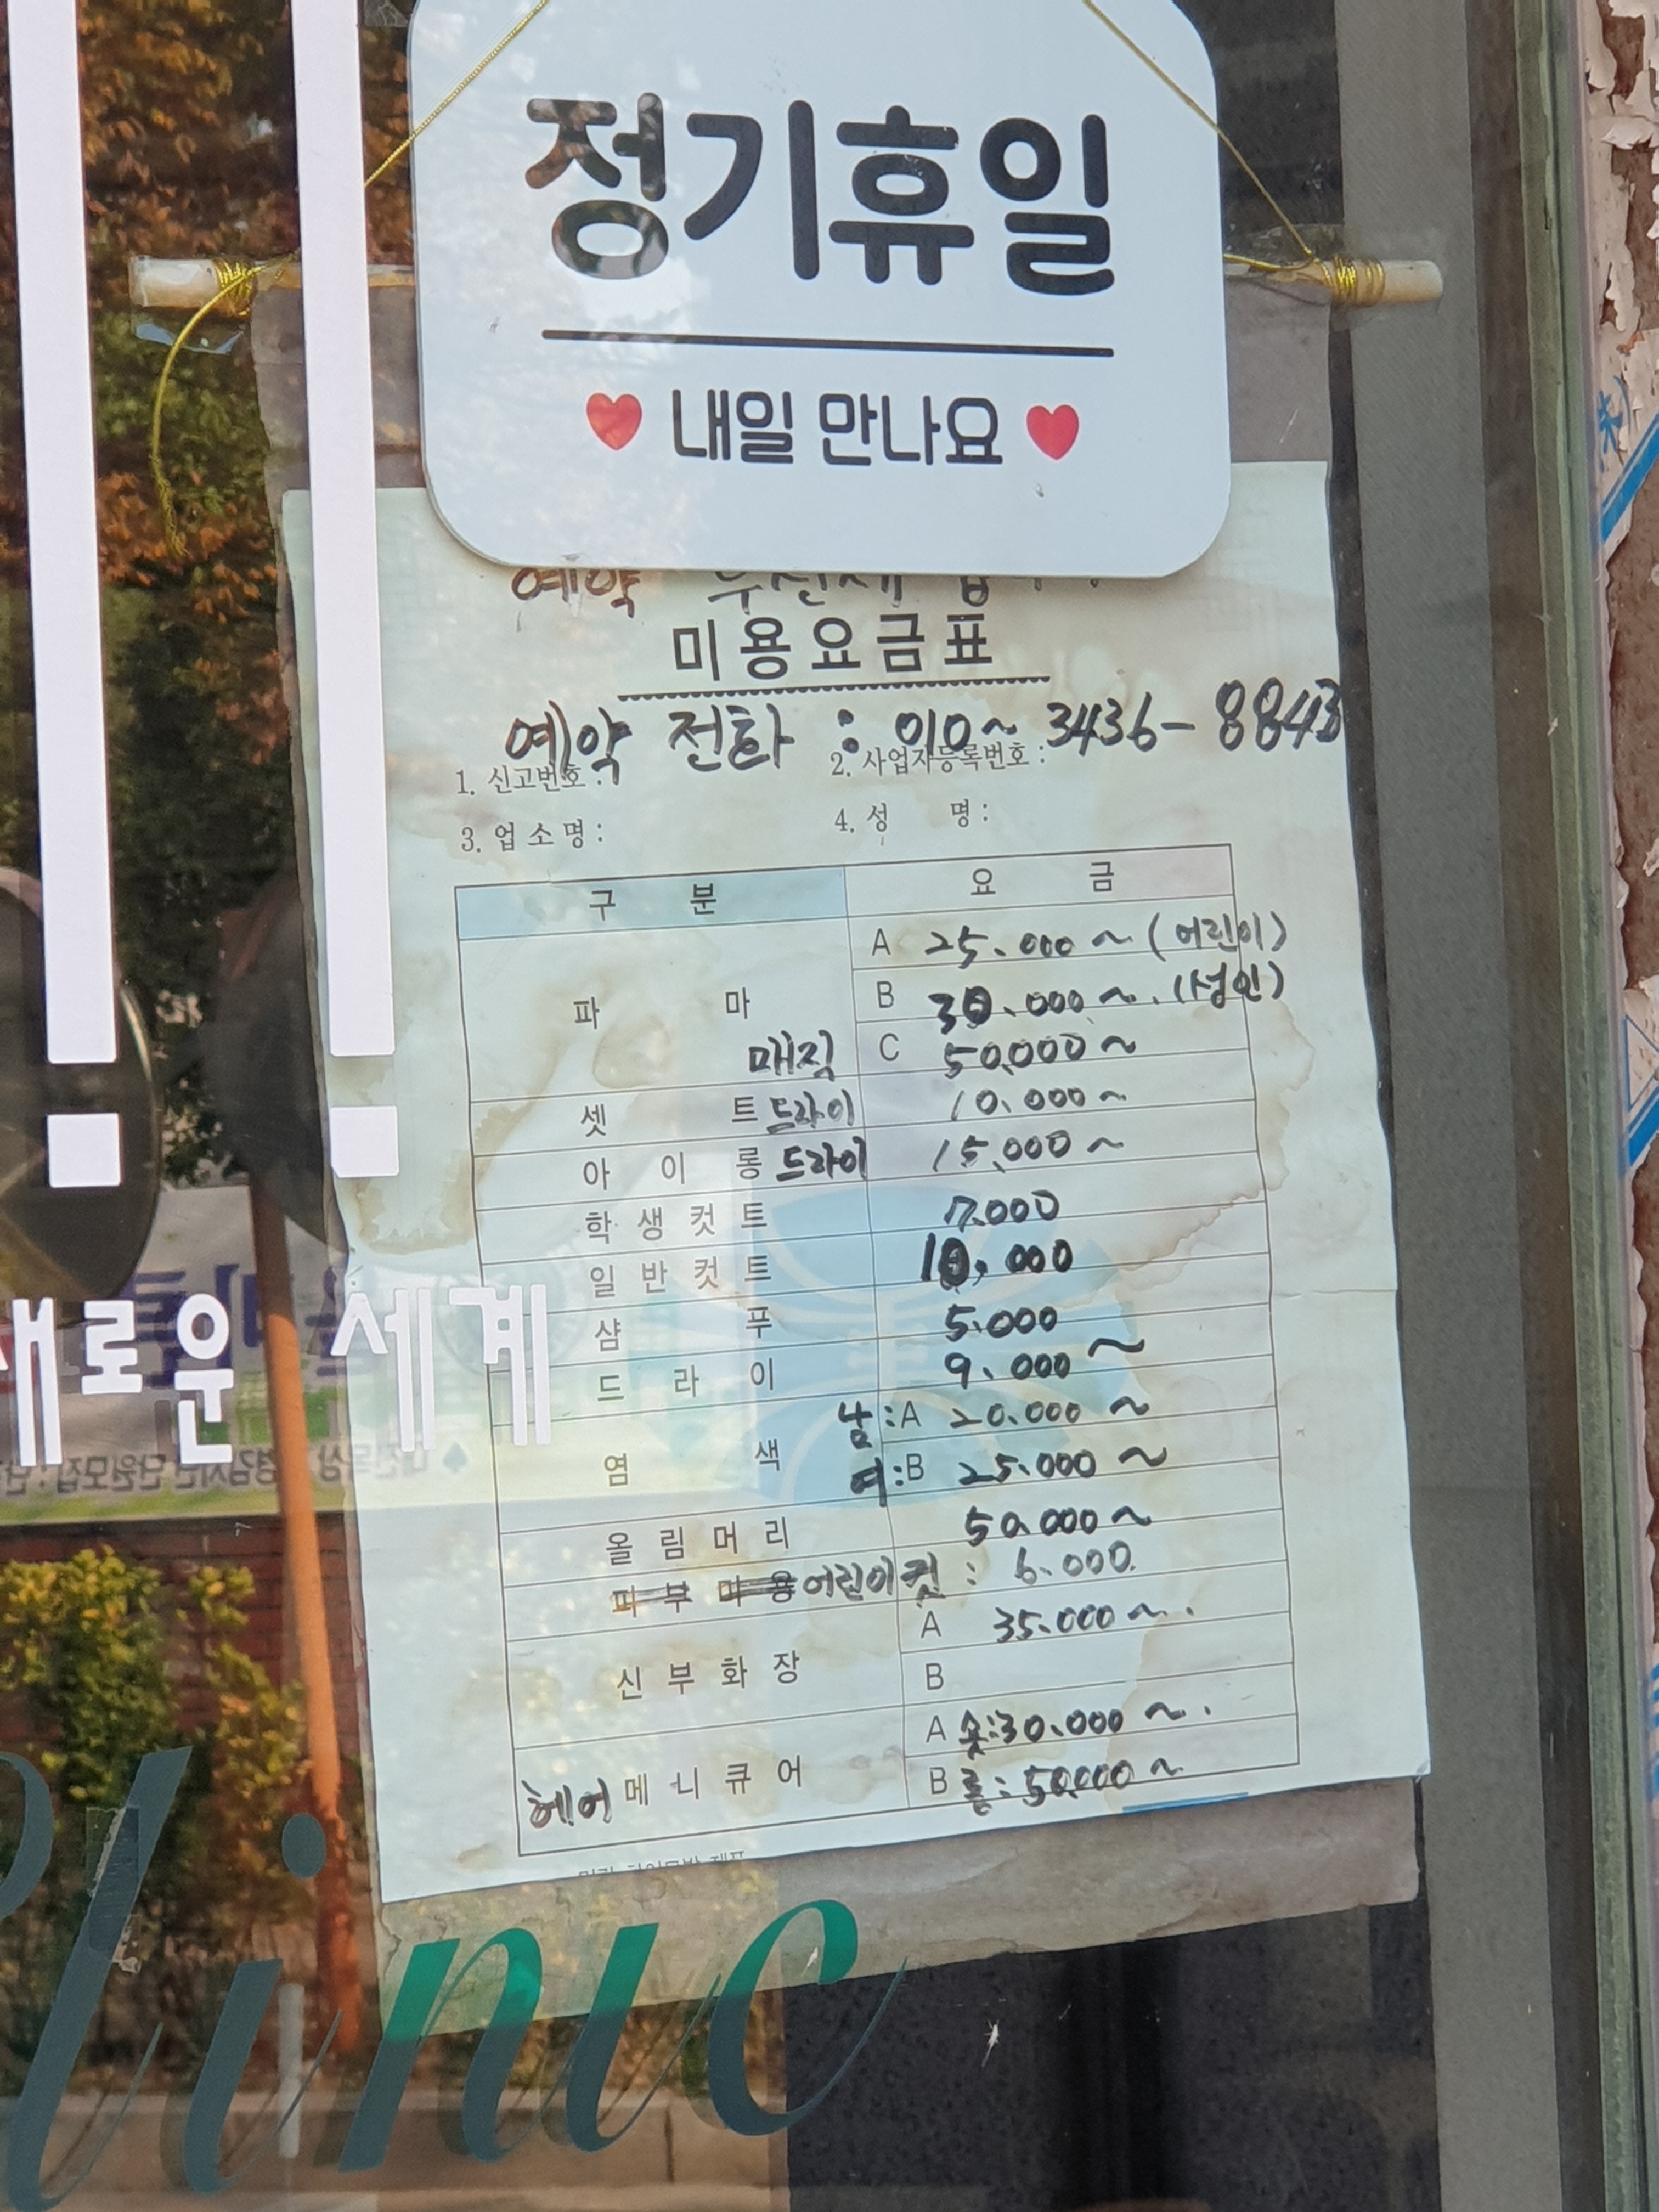 정기휴일
♥ 내일 만나요 ♥
예약 우선제 입니다.
미용요금표
예약 전화 : 010~3436-8843
1. 신고번호 : 2. 사업자등록번호 :
3. 업소명 : 4. 성 명 :
구 분 요 금
파 마 A 25.000 ~ (어린이)
B 30.000 ~. (성인)
매직 C 50.000 ~
셋 트 드라이 10.000 ~
아 이 롱 드라이 15.000 ~
학 생 컷 트 7.000
일 반 컷 트 10,000
샴 푸 5.000
드 라 이 9.000 ~
염 색 남:A 20.000 ~
여:B 25.000 ~
올 림 머 리 50.000 ~
피 부 미 용 어린이컷 : 6.000.
신 부 화 장 A 35.000 ~.
B
헤어 메 니 큐 어 A 숏:30.000 ~.
B 롱:50.000 ~
새로운 세계
Clinic